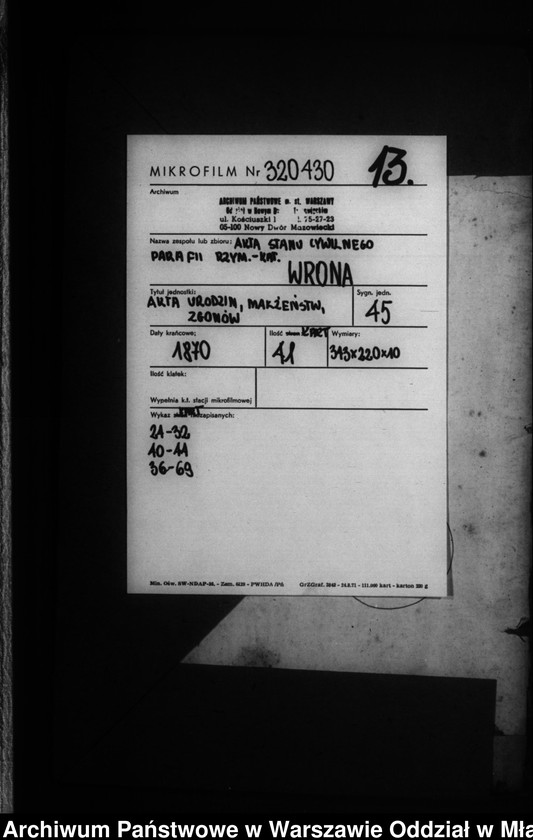 MIKROFILM Nr 320430
13.
Archiwum
ARCHIWUM PAŃSTWOWE m. st. WARSZAWY
w Nowym
ul. Kościuszki 75-27-23
05-100 Nowy Dwór Mazowiecki
Nazwa zespołu lub zbioru: AKTA STANU CYWILNEGO
PARAFII RZYM.-KAT.
WRONA
Tytuł jednostki:
AKTA URODZIN, MAŁŻEŃSTW,
ZGONÓW
Sygn. jedn.
45
Daty krańcowe:
1870
Ilość KART
41
Wymiary:
343x220x10
Ilość klatek:
Wypełnia k.t. stacji mikrofilmowej
Wykaz KART niezapisanych:
21-32
10-11
36-69
Min. Ośw. SW-NDAP-56. - Zam. - PWRZDA
GrZGraf. - 111.000 kart - karton 220 g
Archiwum Państwowe w Warszawie Oddział w Mła